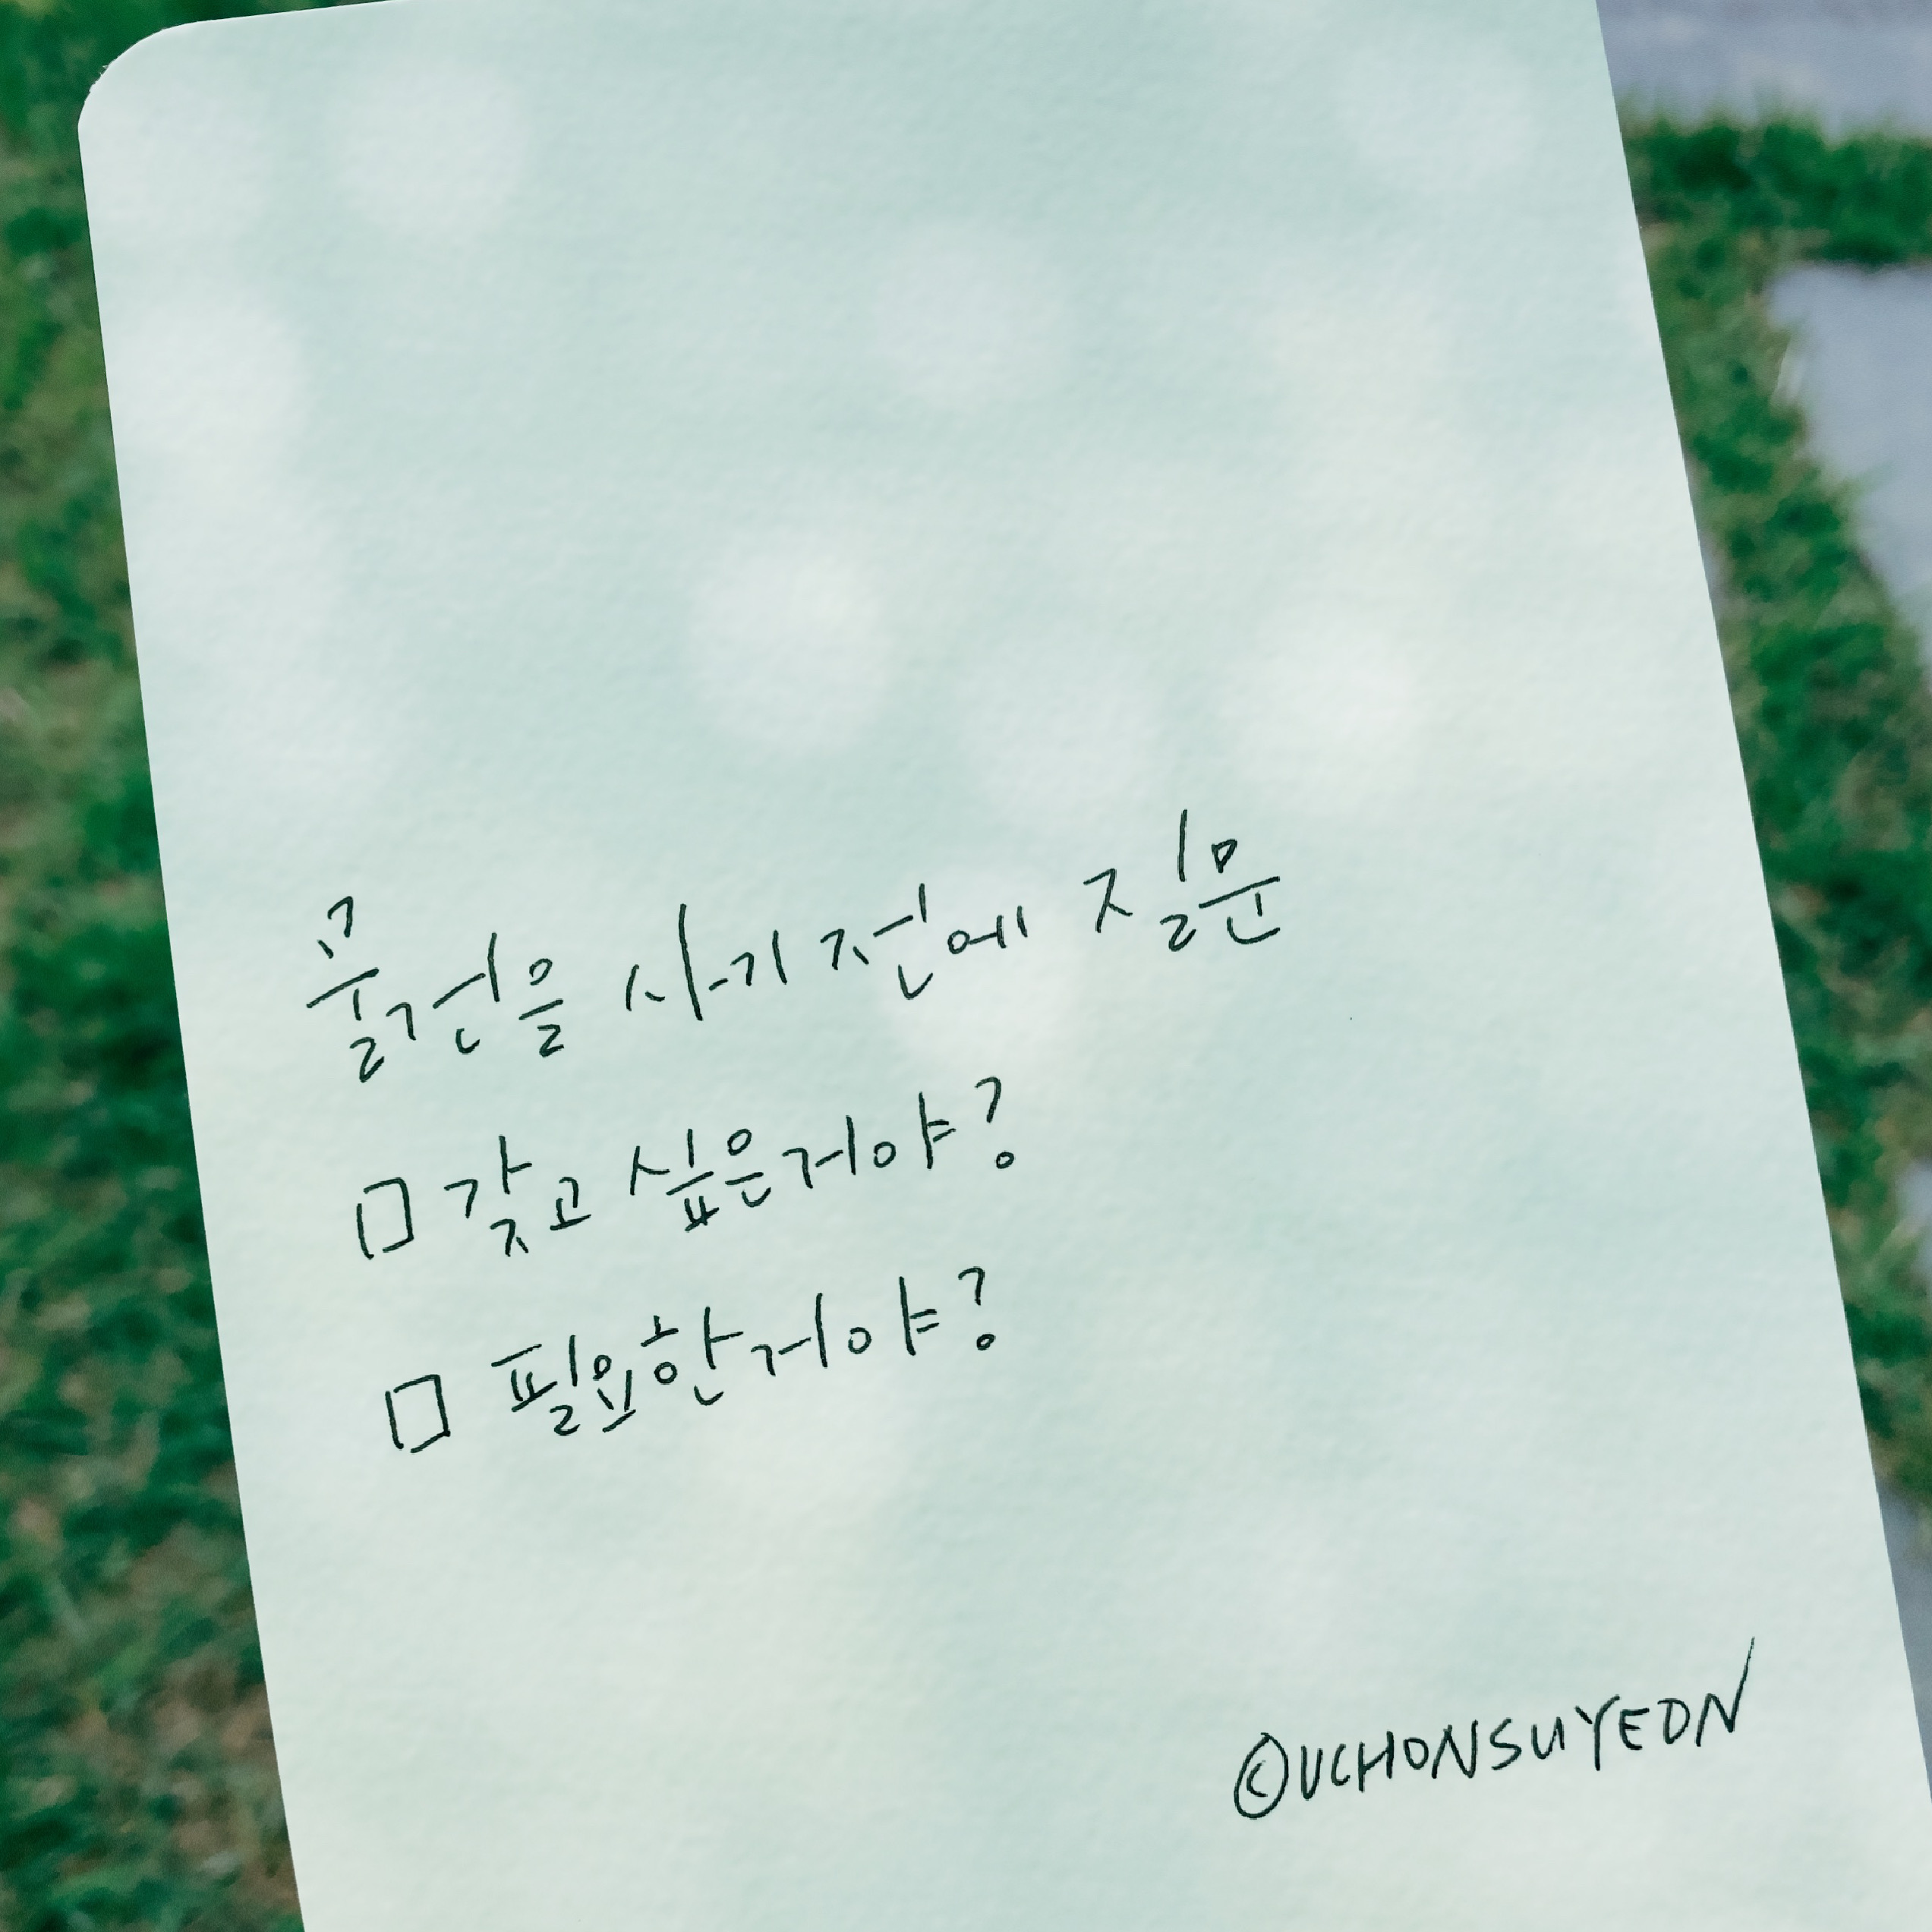 물건을 사기 전에 질문
□ 갖고 싶은거야?
□ 필요한거야?
©UCHONSUYEON